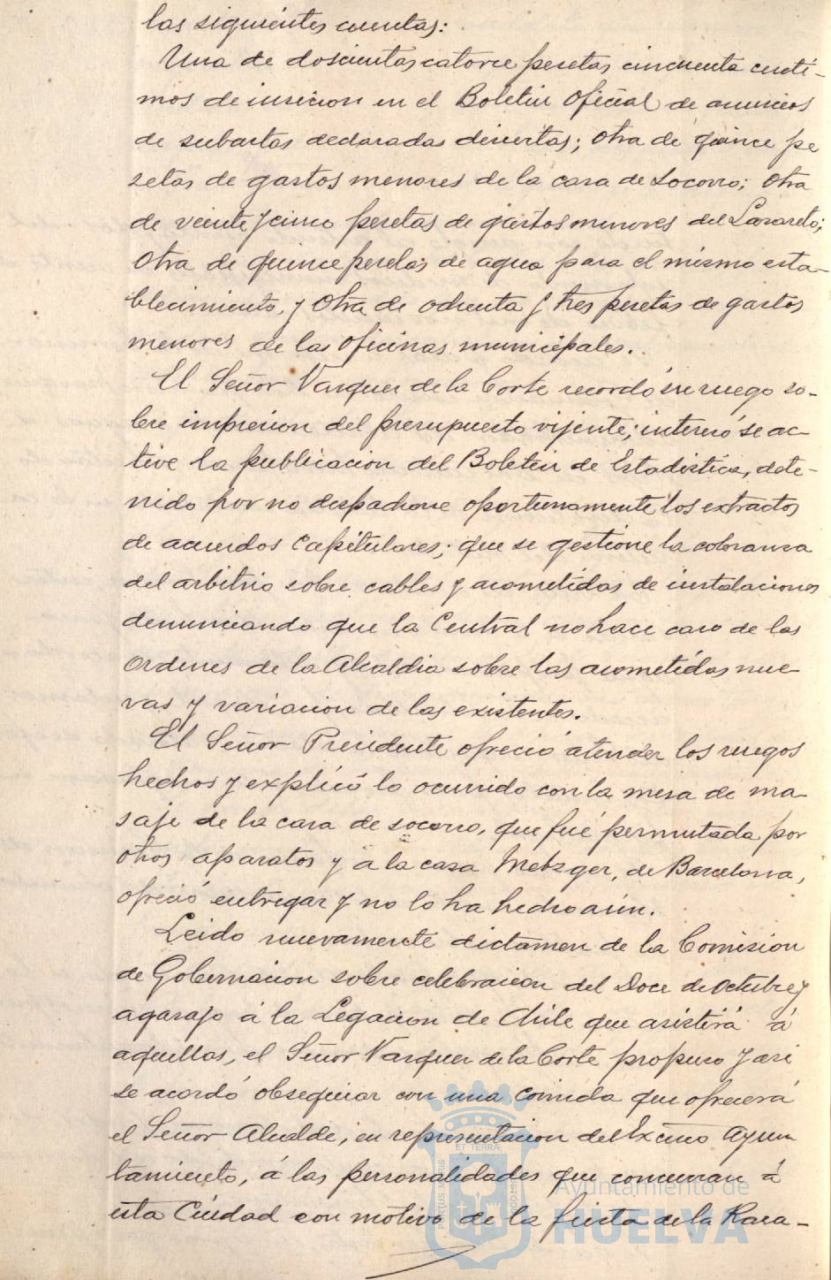 las siguientes cuentas:
Una de doscientas catorce pesetas cincuenta centi-
mos de insecion en el Boletin Oficial de anuncios
de subastas declaradas desiertas; otra de quince pe
setas de gastos menores de la casa de Socorro; otra
de veinte y cinco pesetas de gastos menores del Lazareto;
otra de quince pesetas de agua para el mismo esta-
blecimiento, y otra de ochenta y tres pesetas de gastos
menores de las oficinas municipales.
El Señor Vazquez de la Corte recordó su ruego so-
bre impresion del presupuesto vijente; interesó se ac-
tive la publicacion del Boletin de Estadistica, dete-
nido por no despacharse oportunamente los extractos
de acuerdos Capitulares; que se gestione la cobranza
del arbitrio sobre cables y acometidas de instalaciones
denunciando que la Central no hace caso de las
ordenes de la Alcaldia sobre las acometidas nue-
vas y variacion de las existentes.
El Señor Presidente ofreció atender los ruegos
hechos y explicó lo ocurrido con la mesa de ma-
saje de la casa de socorro, que fué permutada por
otros aparatos y á la casa Metzger, de Barcelona,
ofreció entregar y no lo ha hecho aún.
Leido nuevamente dictamen de la Comision
de Gobernacion sobre celebracion del Doce de Octubre y
agasajo á la Legacion de Chile que asistirá á
aquellas, el Señor Vazquez de la Corte propuso y asi
se acordó obsequiar con una comida que ofrecerá
el Señor Alcalde, en representacion del Excmo Ayun
tamiento, á las personalidades que concurran á
esta Ciudad con motivo de la fiesta de la Raza-
Ayuntamiento de
HUELVA